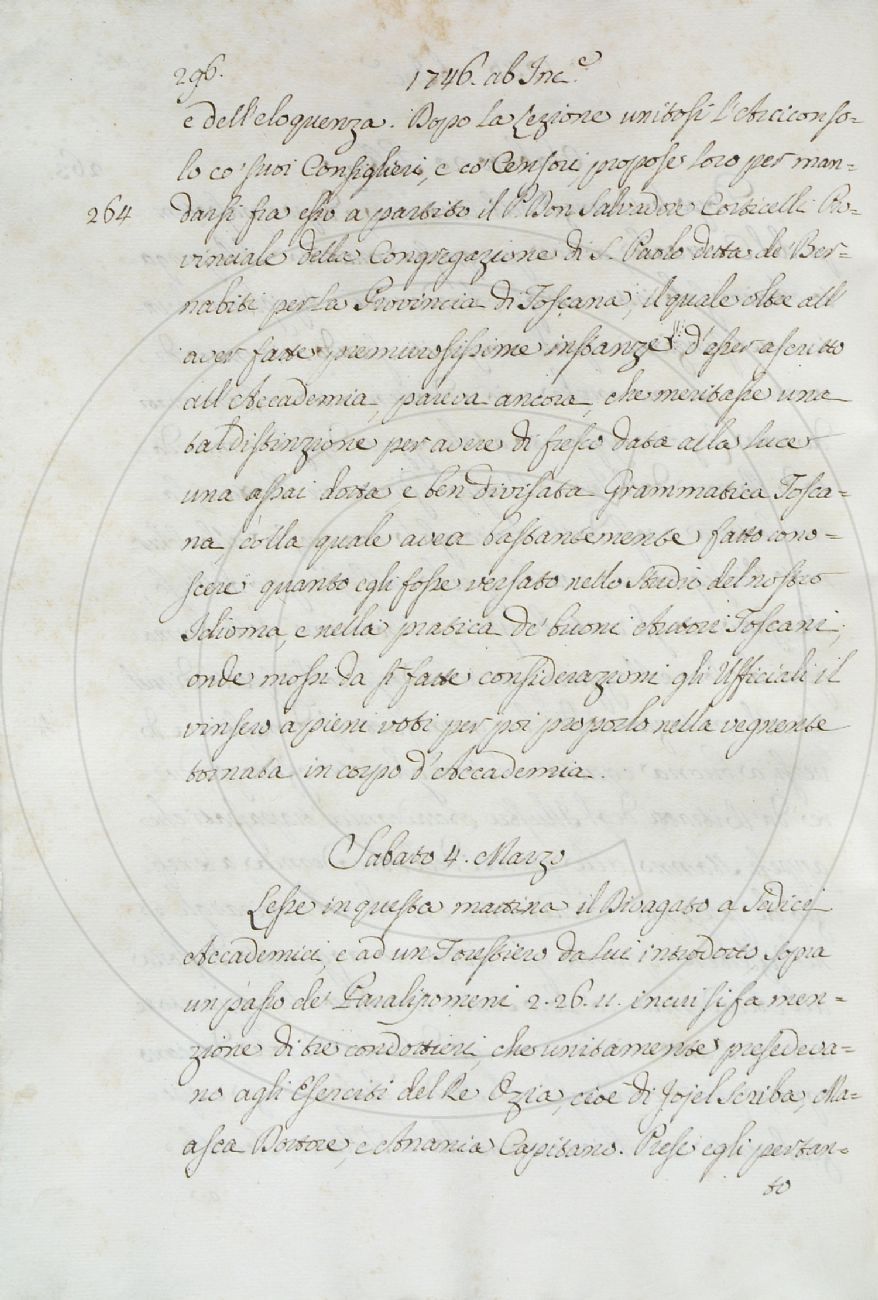 296.
1746. ab Inc.e
e dell'eloquenza. Dopo la Lezione unitosi l'Arciconso=
lo co' suoi Consiglieri, e co' Censori, propose loro per man=
264
darsi fra esso a partito il P. Don Salvadore Corticelli Pro=
vinciale della Congregazione di S. Paolo detta de' Ber=
nabiti per la Provincia di Toscana, il quale oltre all'
aver fatte premurosissime instanze di d'esser ascritto
all'Accademia, pareva ancora, che meritasse una
tal distinzione per avere di fresco data alla luce
una assai dotta e ben divisata Grammatica Tosca=
na, colla quale avea bastantemente fatto cono=
scere quanto egli fosse versato nello studio del nostro
Idioma, e nella pratica de' buoni Autori Toscani;
onde mossi da sì fatte considerazioni gli Ufficiali il
vinsero a pieni voti per poi proporlo nella vegnente
tornata in corpo d'Accademia.
Sabato 4. Marzo
Lesse in questa mattina il Divagato a Sedici
Accademici, e ad un Forestiero da lui introdotto sopra
un passo de' Paralipomeni 2. 26. 11. in cui si fa men=
zione di tre condottieri, che unitamente presedeva=
no agli Eserciti del Re Ozia, cioè di Jojel Scriba, Ma=
asca Dottore, e Anania Capitano. Prese egli pertan=
to